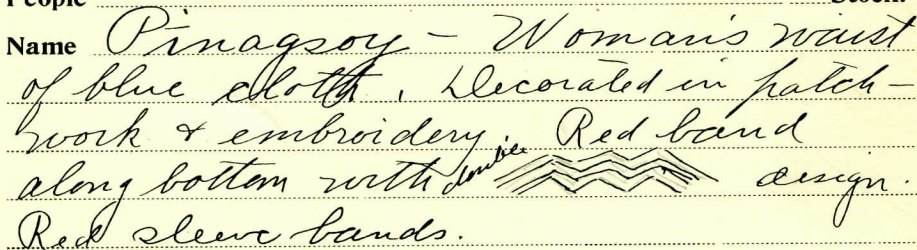 People Stock.
Name Pinagsoy - Woman's waist
of blue cloth. Decorated in patch-
work & embroidery. Red band
along bottom with double design.
Red sleeve bands.